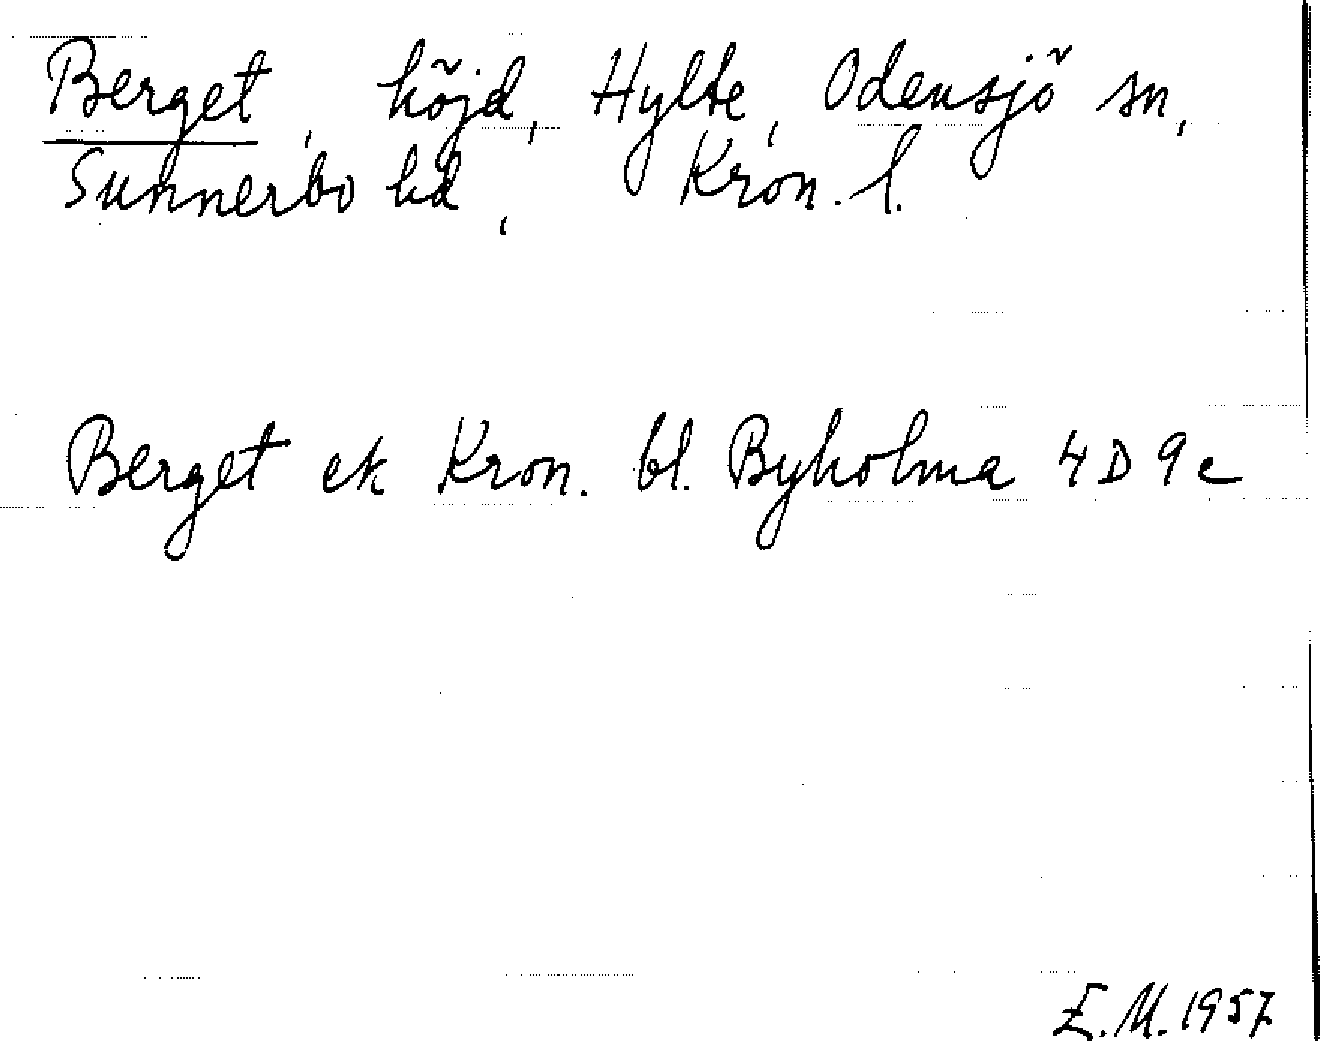 Berget, höjd, Hylte, Odensjö sn,
Sunnerbo hd, Kron. l.
Berget ek Kron. bl. Byholma 4 D 9 c
E. M. 1957